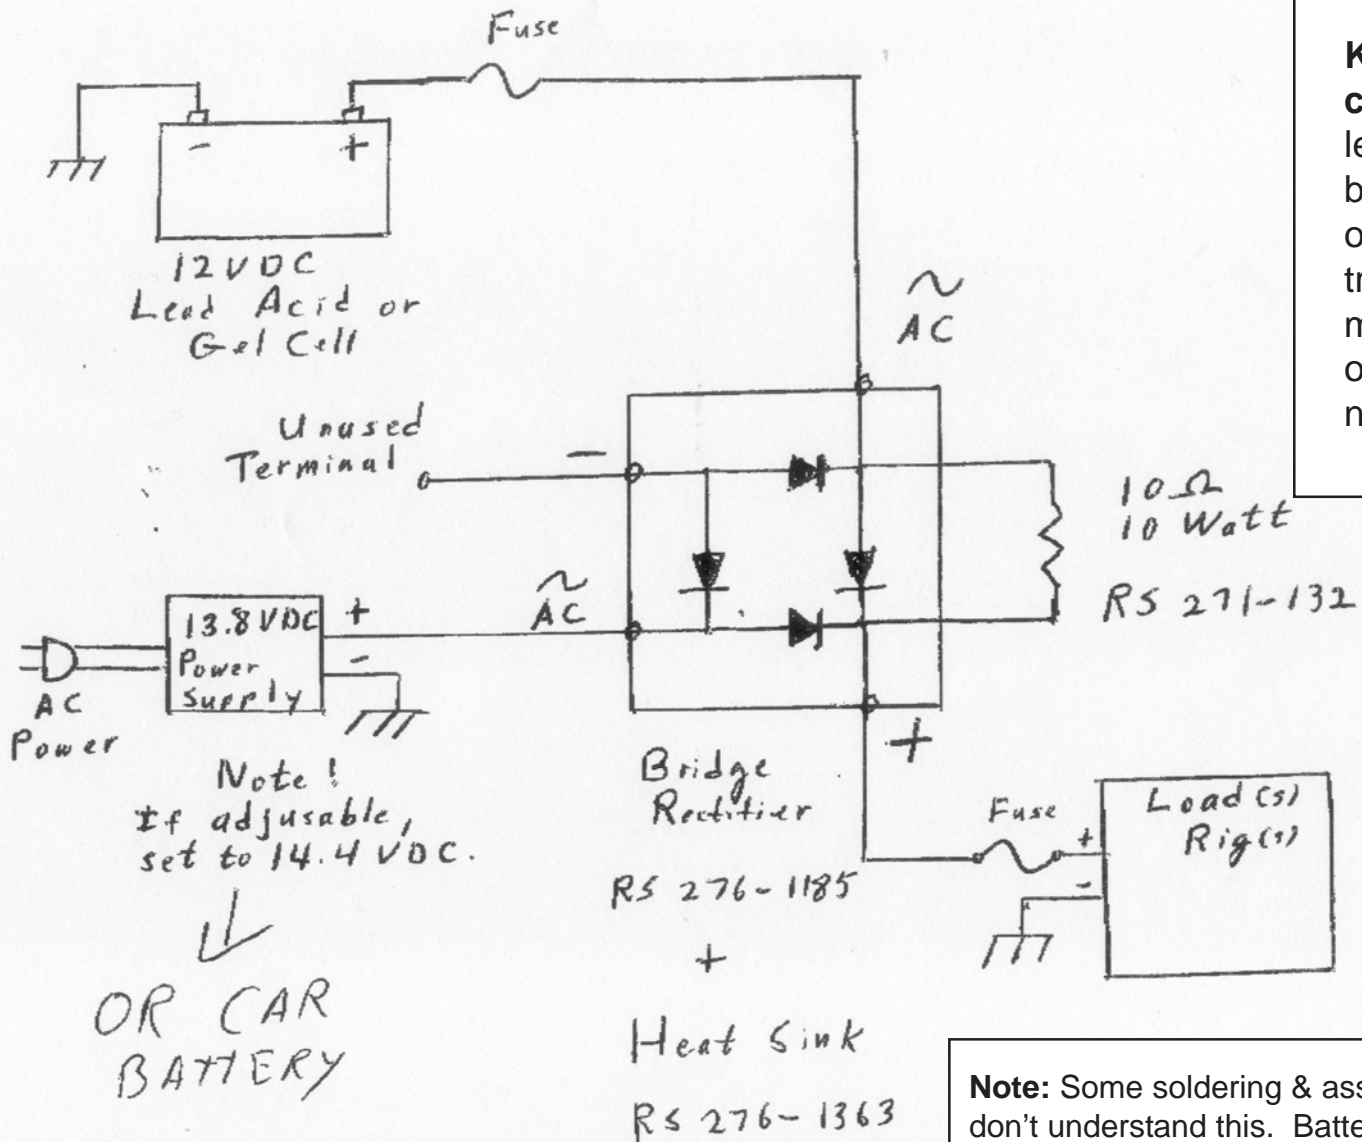 Fuse
- +
12VDC
Lead Acid or
Gel Cell
~
AC
Unused
Terminal
-
10Ω
10 Watt
RS 271-132
~
AC
13.8 VDC
Power
Supply
+
-
AC
Power
Note!
If adjusable,
set to 14.4 VDC.
OR CAR
BATTERY
+
Bridge
Rectifier
RS 276-1185
+
Heat Sink
RS 276-1363
Fuse
+
-
Load(s)
Rig(s)
K
c
le
b
o
tr
m
o
n
Note: Some soldering & ass
don't understand this.  Batte